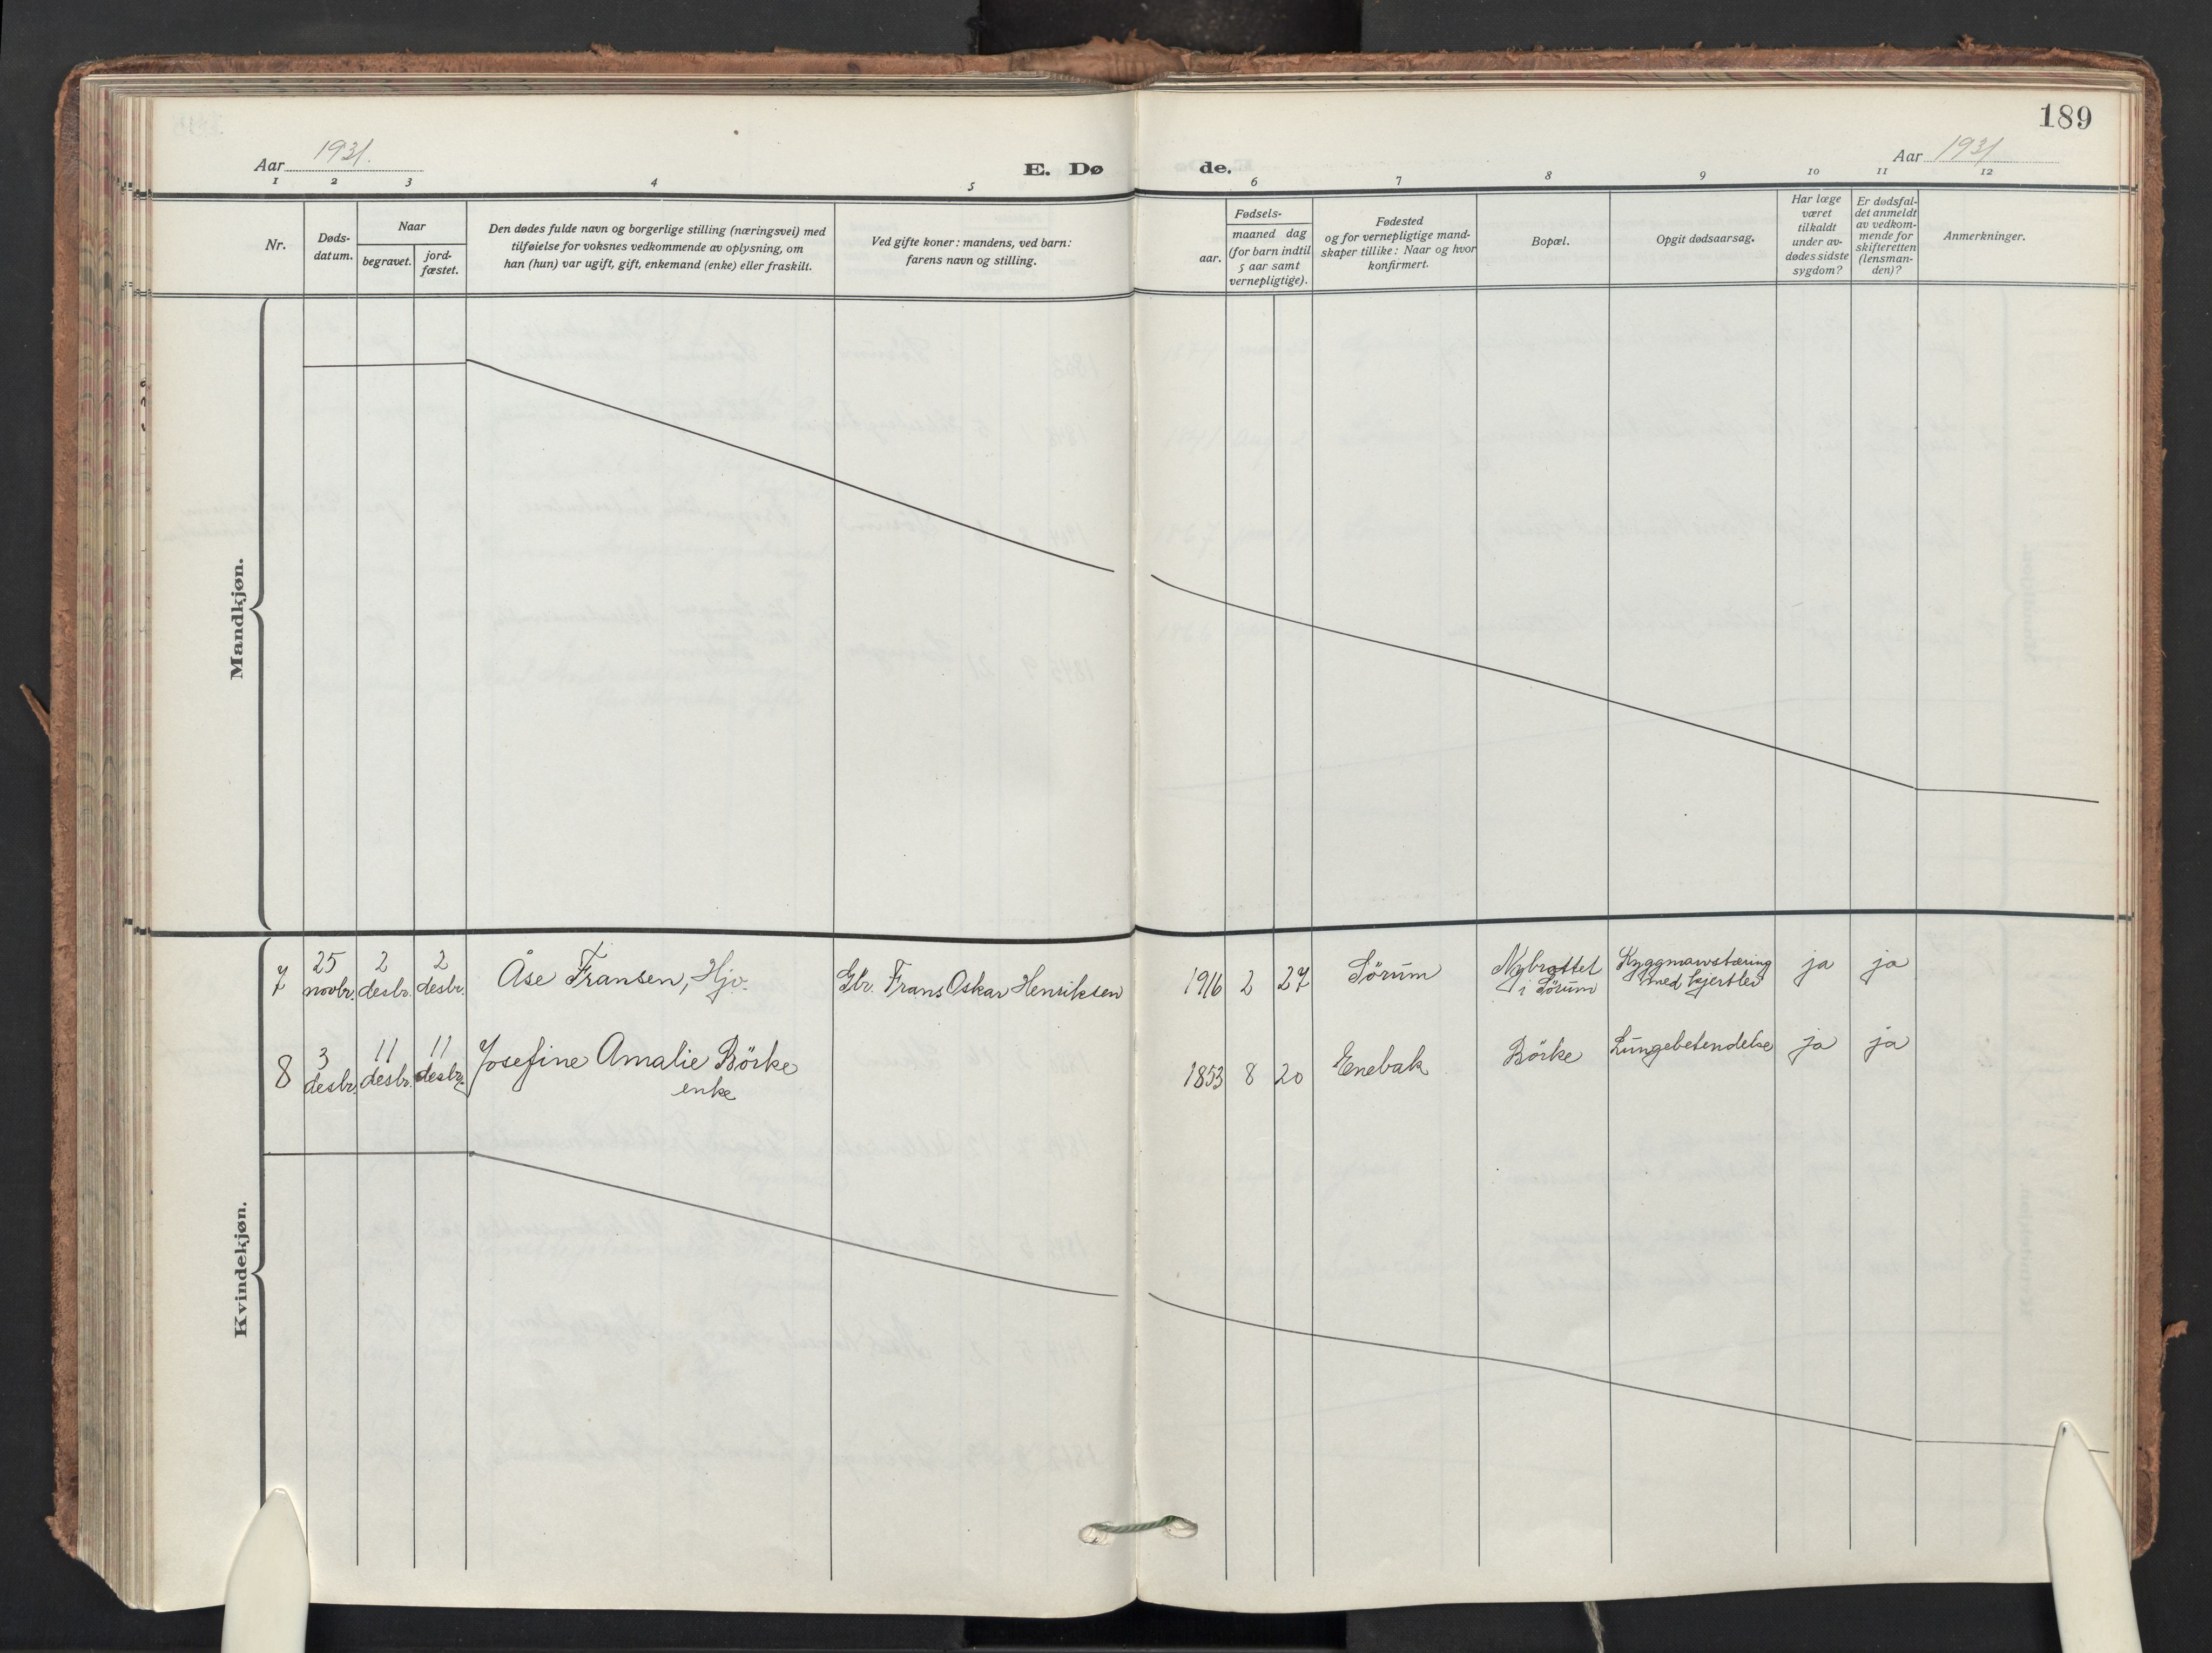 189
Aar 1931.
E. Dø
de.
Aar 1931
1 2 3 4 5 6 7 8 9 10 11 12
Nr.
Døds-
datum.
Naar
begravet.
jord-
fæstet.
Den dødes fulde navn og borgerlige stilling (næringsvei) med
tilføielse for voksnes vedkommende av oplysning, om
han (hun) var ugift, gift, enkemand (enke) eller fraskilt.
Ved gifte koner: mandens, ved barn:
farens navn og stilling.
Fødsels-
aar.
maaned dag
(for barn indtil
5 aar samt
vernepligtige).
Fødested
og for vernepligtige mand-
skaper tillike: Naar og hvor
konfirmert.
Bopæl.
Opgit dødsaarsag.
Har læge
været
tilkaldt
under av-
dødes sidste
sygdom?
Er dødsfal-
det anmeldt
av vedkom-
mende for
skifteretten
(lensman-
den)?
Anmerkninger.
Mandkjøn.
Kvindekjøn.
7 25 novbr. 2 desbr. 2 desbr. Åse Fransen, Hjv. Gbr. Frans Oskar Henriksen 1916 2 27 Sörum Nybrottet i Sörum Ryggmarvstæring med kjertler ja ja
8 3 desbr. 11 desbr. 11 desbr. Josefine Amalie Börke 1853 8 20 Enebak Börke Lungebetendelse ja ja
enke